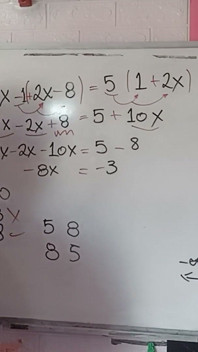 x -1(+2x-8) = 5 (1+2x)
x -2x +8 = 5 + 10x
x-2x-10x = 5 - 8
-8x = -3
0
x
5 8
8 5